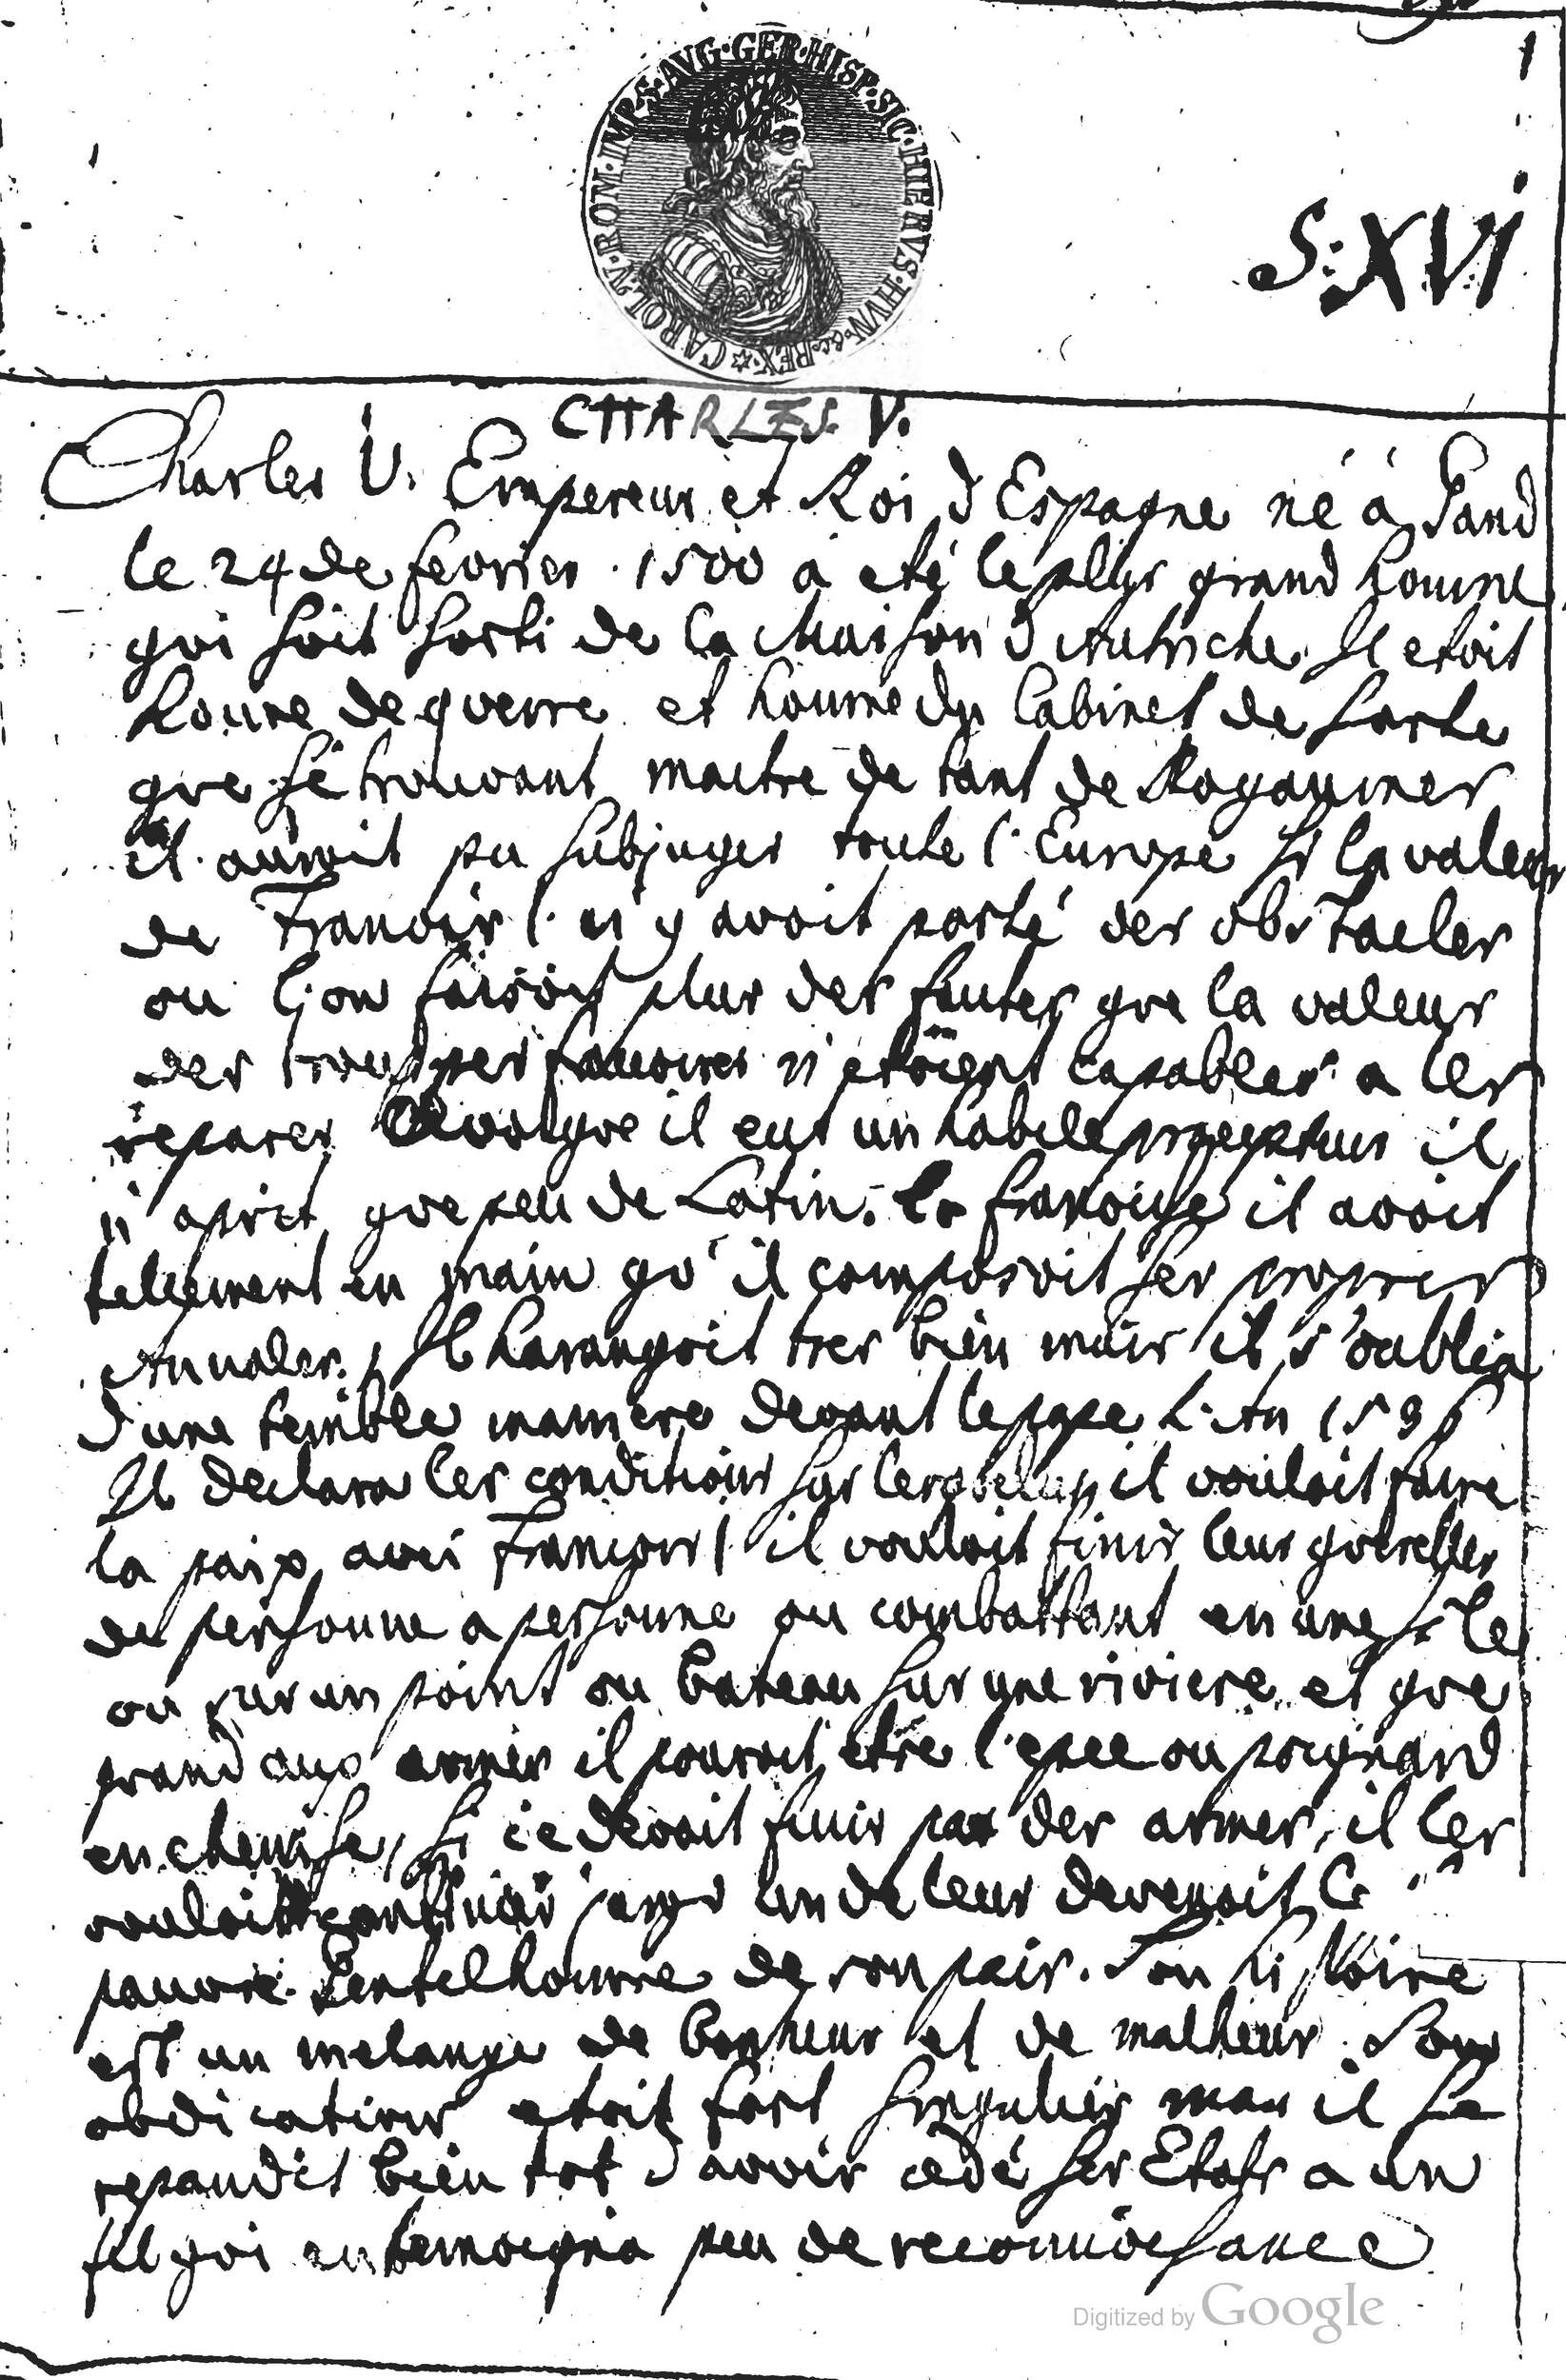 1
CAROL·V·ROM·IMP·S·AVG·GER·HISP·SIC·HIERVS·HVN·&c·REX·
S: XVI
CHARLES. V.
Charles V. Empereur et Roi d Espagne né à Gand
le 24 de fevrier 1500 a eté le plus grand homme
qui soit sorti de la Maison d Autriche. Il etoit
home de guerre et homme du Cabinet de sorte
que se trouvant maitre de tant de Royaumes
il auroit pu subjuger toute l'Europe si la valeur
de Francois I. n'y avoit porté des obstacles
ou l'on faisoit plus des fautes que la valeur
des trouppes n'etoient capables a les
reparer. Quoique il eut un habile precepteur il
n'aprit que peu de Latin. la francoise il avoit
tellement en main qu'il composoit ses propres
Annales. Il harangoit tres bien mais il s'oublia
d'une terrible maniere devant le pape L'An 1536
Il declara les conditions sur lesquelles il vouloit faire
la paix avec Francois I il vouloit finir leur querelles
de personne a personne ou combattant en une isle
ou sur un point ou bateau sur une riviere et que
quand aux armes il pouroit etre l'epee ou poignard
en chemise, si ce devoit finir par des armes, il les
vouloit continuer un de leur devenoit le
pauvre Gentelhomme de son pais. Son histoire
est un melange de bonheur et de malheur. Son
abdication etoit fort singulier mais il se
repandit bien tot d'avoir cedé ses Etats a un
fil qui en temoigna peu de reconnoissance
Digitized by Google